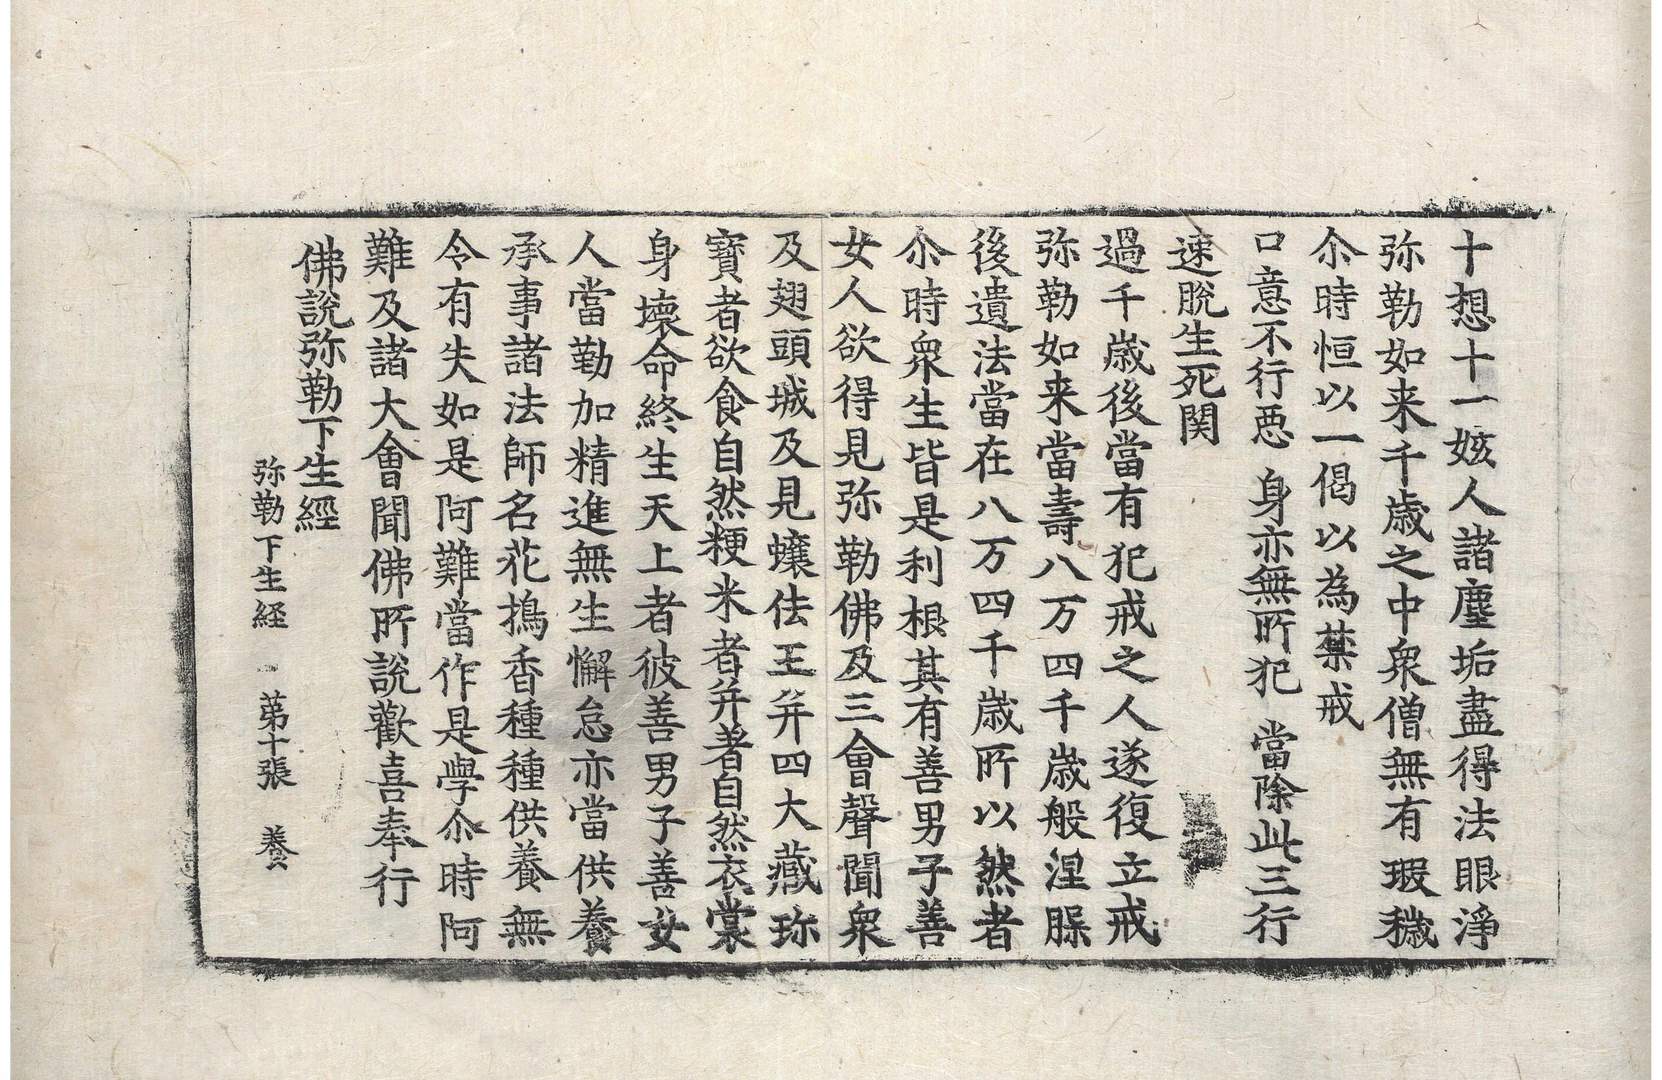 十想十一姟人諸塵垢盡得法眼淨
弥勒如来千歳之中衆僧無有瑕穢
尒時恒以一偈以為禁戒
口意不行惡　身亦無所犯　當除此三行
速脫生死関
過千歳後當有犯戒之人遂復立戒
弥勒如来當壽八万四千歳般涅槃
後遺法當在八万四千歳所以然者
尒時衆生皆是利根其有善男子善
女人欲得見弥勒佛及三會聲聞衆
及翅頭城及見蠰佉王并四大藏珎
寶者欲食自然粳米者并著自然衣裳
身壊命終生天上者彼善男子善女
人當勤加精進無生懈怠亦當供養
承事諸法師名花擣香種種供養無
令有失如是阿難當作是學尒時阿
難及諸大會聞佛所說歡喜奉行
佛說弥勒下生經
弥勒下生経　第十張　養